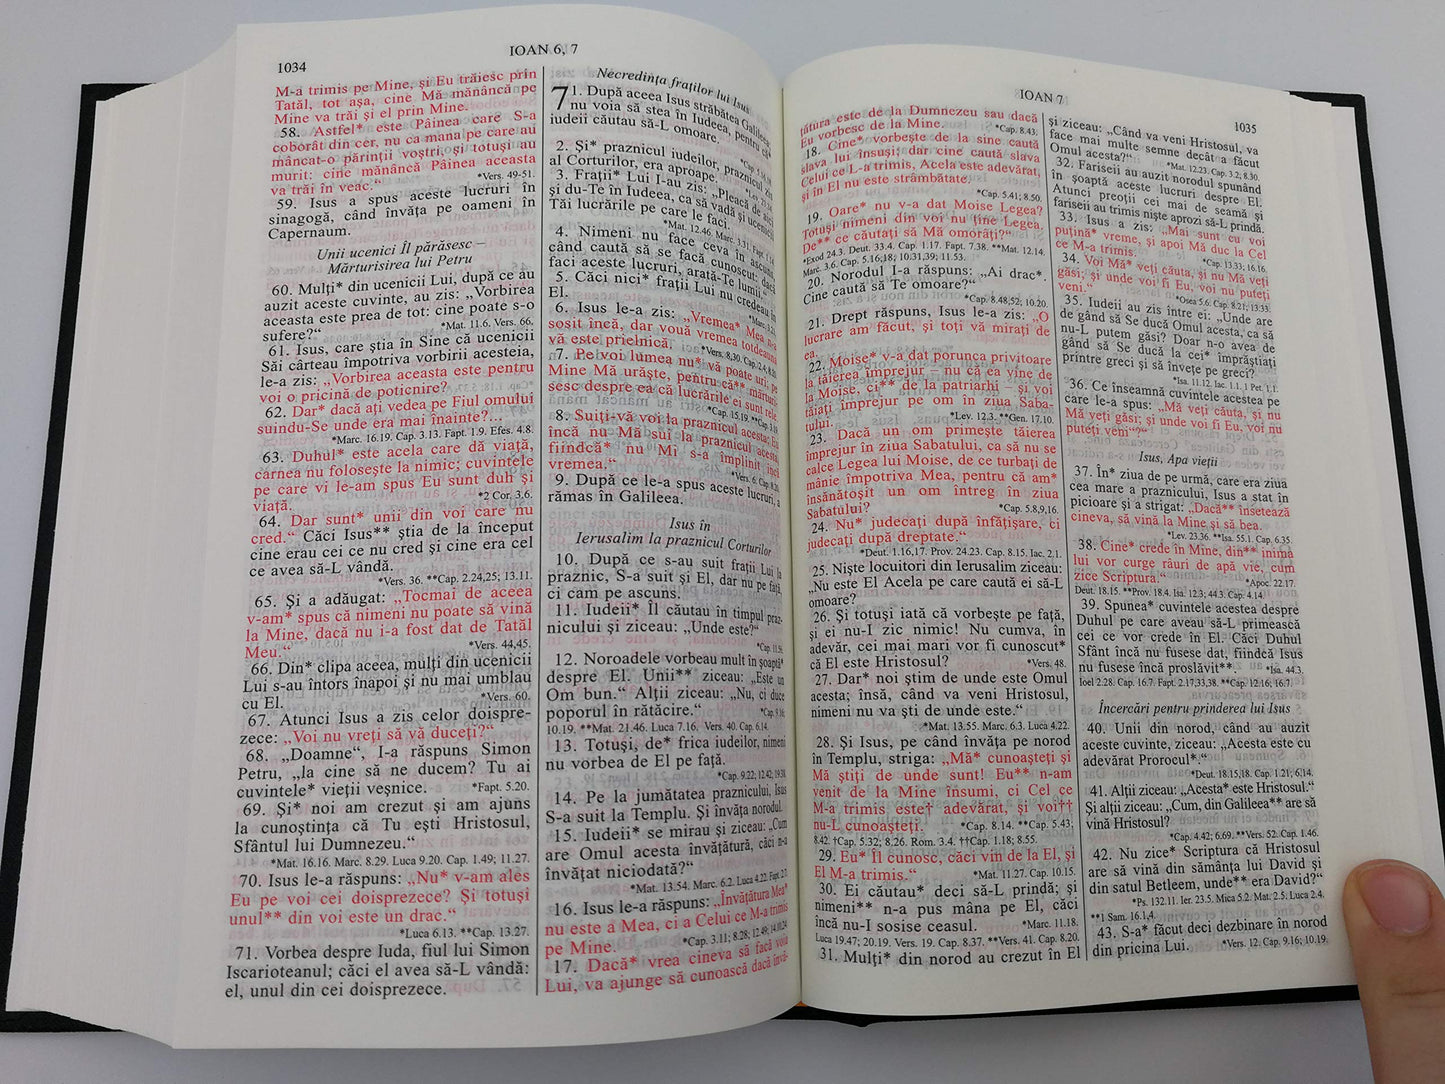 1034
IOAN 6, 7
M-a trimis pe Mine, şi Eu trăiesc prin
Tatăl, tot aşa, cine Mă mănâncă pe
Mine va trăi şi el prin Mine.
58. Astfel* este Pâinea care S-a
coborât din cer, nu ca mana pe care au
mâncat-o părinţii voştri, şi totuşi au
murit: cine mănâncă Pâinea aceasta
va trăi în veac.“
*Vers. 49-51.
59. Isus a spus aceste lucruri în
sinagogă, când învăţa pe oameni în
Capernaum.
Unii ucenici Îl părăsesc –
Mărturisirea lui Petru
60. Mulţi* din ucenicii Lui, după ce au
auzit aceste cuvinte, au zis: „Vorbirea
aceasta este prea de tot: cine poate s-o
sufere?“
*Mat. 11.6. Vers. 66.
61. Isus, care ştia în Sine că ucenicii
Săi cârteau împotriva vorbirii acesteia,
le-a zis: „Vorbirea aceasta este pentru
voi o pricină de poticnire?
62. Dar* dacă aţi vedea pe Fiul omului
suindu-Se unde era mai înainte?...
*Marc. 16.19. Cap. 3.13. Fapt. 1.9. Efes. 4.8.
63. Duhul* este acela care dă viaţă,
carnea nu foloseşte la nimic; cuvintele
pe care vi le-am spus Eu sunt duh şi
viaţă.
*2 Cor. 3.6.
64. Dar sunt* unii din voi care nu
cred.“ Căci Isus** ştia de la început
cine erau cei ce nu cred şi cine era cel
ce avea să-L vândă.
*Vers. 36. **Cap. 2.24,25; 13.11.
65. Şi a adăugat: „Tocmai de aceea
v-am* spus că nimeni nu poate să vină
la Mine, dacă nu i-a fost dat de Tatăl
Meu.“
*Vers. 44,45.
66. Din* clipa aceea, mulţi din ucenicii
Lui s-au întors înapoi şi nu mai umblau
cu El.
*Vers. 60.
67. Atunci Isus a zis celor doispre-
zece: „Voi nu vreţi să vă duceţi?“
68. „Doamne“, I-a răspuns Simon
Petru, „la cine să ne ducem? Tu ai
cuvintele* vieţii veşnice.
*Fapt. 5.20.
69. Şi* noi am crezut şi am ajuns
la cunoştinţa că Tu eşti Hristosul,
Sfântul lui Dumnezeu.“
*Mat. 16.16. Marc. 8.29. Luca 9.20. Cap. 1.49; 11.27.
70. Isus le-a răspuns: „Nu* v-am ales
Eu pe voi cei doisprezece? Şi totuşi
unul** din voi este un drac.“
*Luca 6.13. **Cap. 13.27.
71. Vorbea despre Iuda, fiul lui Simon
Iscarioteanul; căci el avea să-L vândă:
el, unul din cei doisprezece.
Necredinţa fraţilor lui Isus
7 1. După aceea Isus străbătea Galileea;
nu voia să stea în Iudeea, pentru că*
iudeii căutau să-L omoare.
2. Şi* praznicul iudeilor, praznicul zis
al Corturilor, era aproape.
3. Fraţii* Lui I-au zis: „Pleacă de aici
şi du-Te în Iudeea, ca să vadă şi ucenicii
Tăi lucrările pe care le faci.
*Mat. 12.46. Marc. 3.31. Fapt. 1.14.
4. Nimeni nu face ceva în ascuns,
când caută să se facă cunoscut: dacă
faci aceste lucruri, arată-Te lumii.“
5. Căci nici* fraţii Lui nu credeau în
El.
*Marc. 3.21.
6. Isus le-a zis: „Vremea* Mea n-a
sosit încă, dar vouă vremea totdeauna
vă este prielnică.
*Vers. 8,30. Cap. 2.4; 8.20.
7. Pe voi lumea nu* vă poate urî; pe
Mine Mă urăşte, pentru că** mărturi-
sesc despre ea că lucrările ei sunt rele.
*Cap. 15.19. **Cap. 3.19.
8. Suiţi-vă voi la praznicul acesta; Eu
încă nu Mă sui la praznicul acesta,
fiindcă* nu Mi s-a împlinit încă
vremea.“
*Vers. 6. Cap. 8.20.
9. După ce le-a spus aceste lucruri, a
rămas în Galileea.
Isus în
Ierusalim la praznicul Corturilor
10. După ce s-au suit fraţii Lui la
praznic, S-a suit şi El, dar nu pe faţă,
ci cam pe ascuns.
11. Iudeii* Îl căutau în timpul praz-
nicului şi ziceau: „Unde este?“
*Cap. 11.56.
12. Noroadele vorbeau mult în şoaptă*
despre El. Unii** ziceau: „Este un
Om bun.“ Alţii ziceau: „Nu, ci duce
poporul în rătăcire.“
*Cap. 9.16;
10.19. **Mat. 21.46. Luca 7.16. Vers. 40. Cap. 6.14.
13. Totuşi, de* frica iudeilor, nimeni
nu vorbea de El pe faţă.
*Cap. 9.22; 12.42; 19.38.
14. Pe la jumătatea praznicului, Isus
S-a suit la Templu. Şi învăţa norodul.
15. Iudeii* se mirau şi ziceau: „Cum
are Omul acesta învăţătură, căci n-a
învăţat niciodată?“
*Mat. 13.54. Marc. 6.2. Luca 4.22. Fapt. 2.7.
16. Isus le-a răspuns: „Învăţătura Mea*
nu este a Mea, ci a Celui ce M-a trimis
pe Mine.
*Cap. 3.11; 8.28; 12.49; 14.10,24.
17. Dacă* vrea cineva să facă voia
Lui, va ajunge să cunoască dacă învă-
IOAN 7
1035
ţătura este de la Dumnezeu sau dacă
Eu vorbesc de la Mine.
*Cap. 8.43.
18. Cine* vorbeşte de la sine caută
slava lui însuşi; dar cine caută slava
Celui ce L-a trimis, Acela este adevărat,
şi în El nu este strâmbătate.
*Cap. 5.41; 8.50.
19. Oare* nu v-a dat Moise Legea?
Totuşi nimeni din voi nu ţine Legea.
De** ce căutaţi să Mă omorâţi?“
*Exod 24.3. Deut. 33.4. Cap. 1.17. Fapt. 7.38. **Mat. 12.14.
Marc. 3.6. Cap. 5.16,18; 10:31,39; 11.53.
20. Norodul I-a răspuns: „Ai drac*.
Cine caută să Te omoare?“
*Cap. 8.48,52; 10.20.
21. Drept răspuns, Isus le-a zis: „O
lucrare am făcut, şi toţi vă miraţi de
ea.
22. Moise* v-a dat porunca privitoare
la tăierea împrejur – nu că ea vine de
la Moise, ci** de la patriarhi – şi voi
tăiaţi împrejur pe om în ziua Saba-
tului.
*Lev. 12.3. **Gen. 17.10.
23. Dacă un om primeşte tăierea
împrejur în ziua Sabatului, ca să nu se
calce Legea lui Moise, de ce turbaţi de
mânie împotriva Mea, pentru că am*
însănătoşit un om întreg în ziua
Sabatului?
*Cap. 5.8,9,16.
24. Nu* judecaţi după înfăţişare, ci
judecaţi după dreptate.“
*Deut. 1.16,17. Prov. 24.23. Cap. 8.15. Iac. 2.1.
25. Nişte locuitori din Ierusalim ziceau:
„Nu este El Acela pe care caută ei să-L
omoare?
26. Şi totuşi iată că vorbeşte pe faţă,
şi ei nu-I zic nimic! Nu cumva, în
adevăr, cei mai mari vor fi cunoscut*
că El este Hristosul?
*Vers. 48.
27. Dar* noi ştim de unde este Omul
acesta; însă, când va veni Hristosul,
nimeni nu va şti de unde este.“
*Mat. 13.55. Marc. 6.3. Luca 4.22.
28. Şi Isus, pe când învăţa pe norod
în Templu, striga: „Mă* cunoaşteţi şi
Mă ştiţi de unde sunt! Eu** n-am
venit de la Mine însumi, ci Cel ce
M-a trimis este† adevărat, şi voi††
nu-L cunoaşteţi.
*Cap. 8.14. **Cap. 5.43;
8.42. †Cap. 5.32; 8.26. Rom. 3.4. ††Cap. 1.18; 8.55.
29. Eu* Îl cunosc, căci vin de la El, şi
El M-a trimis.“
*Mat. 11.27. Cap. 10.15.
30. Ei căutau* deci să-L prindă; şi
nimeni** n-a pus mâna pe El, căci
încă nu-I sosise ceasul.
*Marc. 11.18.
Luca 19.47; 20.19. Vers. 19. Cap. 8.37. **Vers. 41. Cap. 8.20.
31. Mulţi* din norod au crezut în El
şi ziceau: „Când va veni Hristosul, va
face mai multe semne decât a făcut
Omul acesta?“
*Mat. 12.23. Cap. 3.2; 8.30.
32. Fariseii au auzit norodul spunând
în şoaptă aceste lucruri despre El.
Atunci preoţii cei mai de seamă şi
fariseii au trimis nişte aprozi să-L prindă.
33. Isus a zis: „Mai sunt cu voi
puţină* vreme, şi apoi Mă duc la Cel
ce M-a trimis.
*Cap. 13.33; 16.16.
34. Voi Mă* veţi căuta, şi nu Mă veţi
găsi; şi unde voi fi Eu, voi nu puteţi
veni.“
*Osea 5.6. Cap. 8.21; 13.33.
35. Iudeii au zis între ei: „Unde are
de gând să Se ducă Omul acesta, ca să
nu-L putem găsi? Doar n-o avea de
gând să Se ducă la cei* împrăştiaţi
printre greci şi să înveţe pe greci?
*Isa. 11.12. Iac. 1.1. 1 Pet. 1.1.
36. Ce înseamnă cuvintele acestea pe
care le-a spus: „Mă veţi căuta, şi nu
Mă veţi găsi; şi unde voi fi Eu, voi nu
puteţi veni“?“
Isus, Apa vieţii
37. În* ziua de pe urmă, care era ziua
cea mare a praznicului, Isus a stat în
picioare şi a strigat: „Dacă** însetează
cineva, să vină la Mine şi să bea.
*Lev. 23.36. **Isa. 55.1. Cap. 6.35.
38. Cine* crede în Mine, din** inima
lui vor curge râuri de apă vie, cum
zice Scriptura.“
*Apoc. 22.17.
Deut. 18.15. **Prov. 18.4. Isa. 12.3; 44.3. Cap. 4.14.
39. Spunea* cuvintele acestea despre
Duhul pe care aveau să-L primească
cei ce vor crede în El. Căci Duhul
Sfânt încă nu fusese dat, fiindcă Isus
nu fusese încă proslăvit**
*Isa. 44.3.
Ioel 2.28. Cap. 16.7. Fapt. 2.17,33,38. **Cap. 12:16; 16.7.
Încercări pentru prinderea lui Isus
40. Unii din norod, când au auzit
aceste cuvinte, ziceau: „Acesta este cu
adevărat Prorocul*.“
*Deut. 18.15,18. Cap. 1.21; 6.14.
41. Alţii ziceau: „Acesta* este Hristosul.“
Şi alţii ziceau: „Cum, din Galileea** are să
vină Hristosul?
*Cap. 4.42; 6.69. **Vers. 52. Cap. 1.46.
42. Nu zice* Scriptura că Hristosul
are să vină din sămânţa lui David şi
din satul Betleem, unde** era David?“
*Ps. 132.11. Ier. 23.5. Mica 5.2. Mat. 2.5. Luca 2.4.
**1 Sam. 16.1,4.
43. S-a* făcut deci dezbinare în norod
din pricina Lui.
*Vers. 12. Cap. 9.16; 10.19.